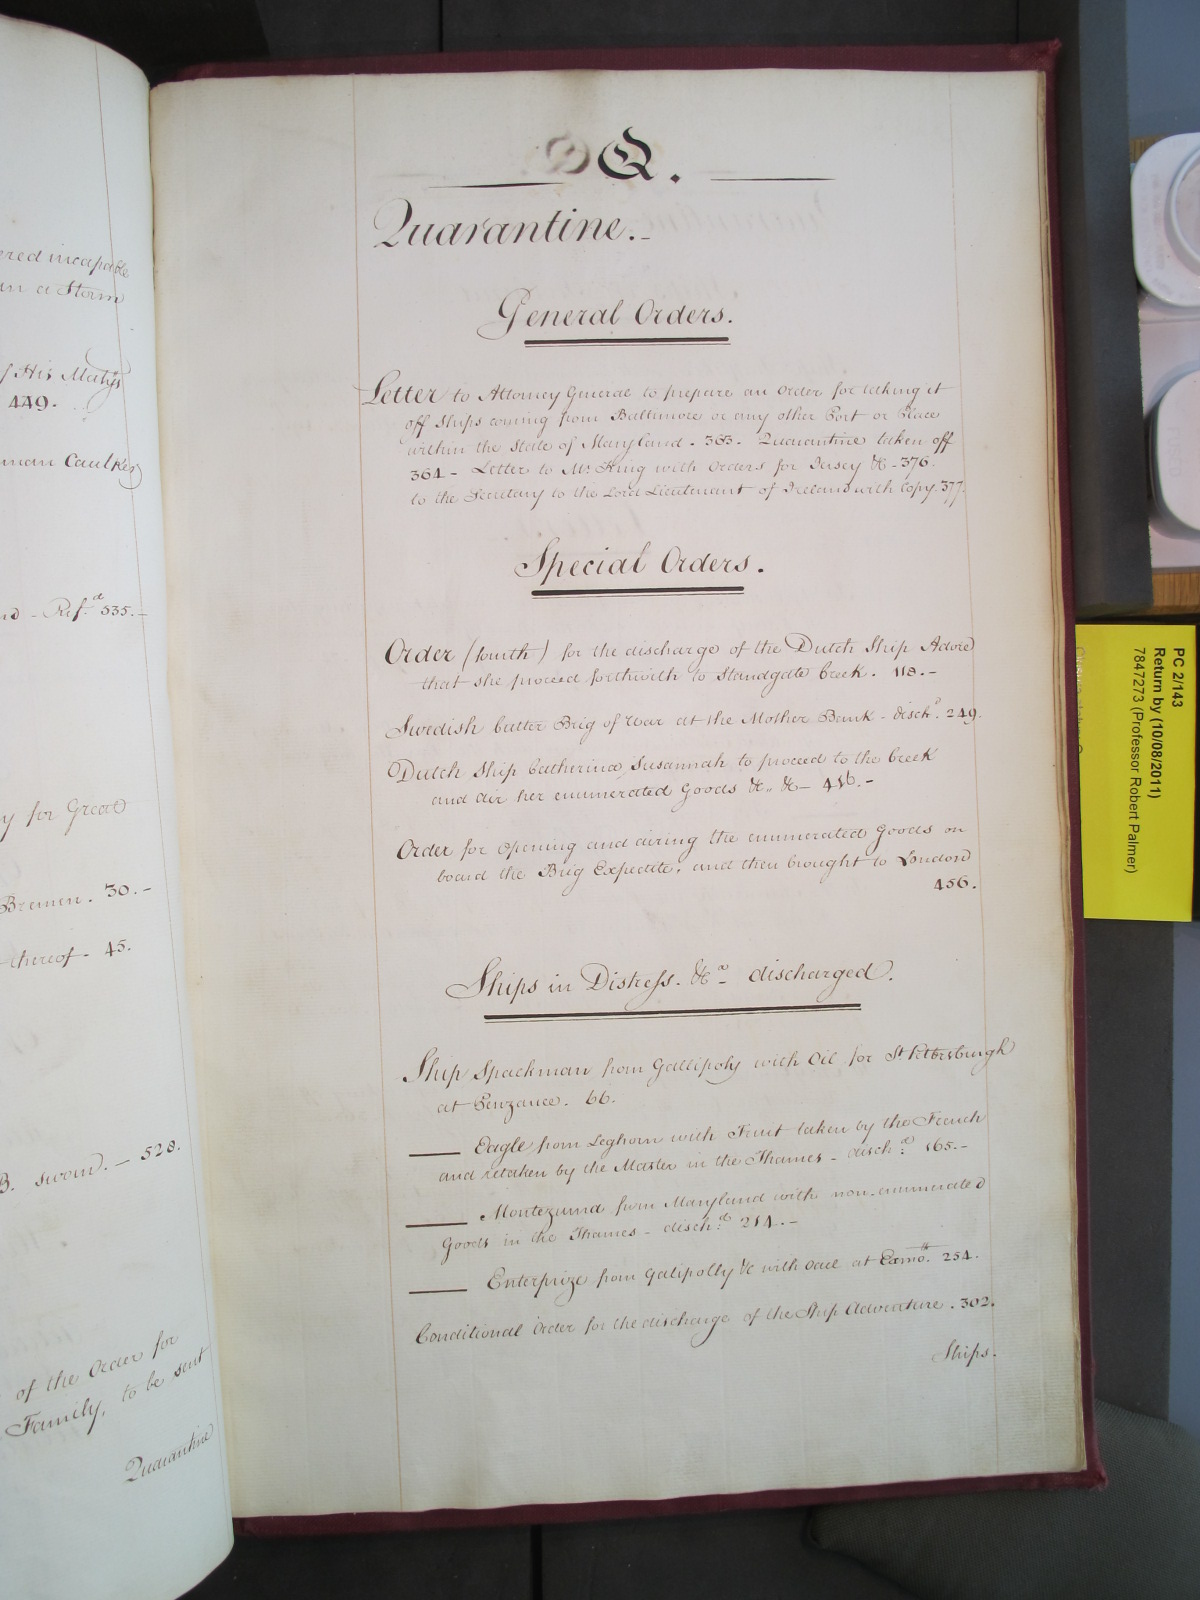 ered incapable
in a Storm
f His Matys
449.
man Caulker
nd - Ref.a 535.-
y for Great
Bremen. 30.-
thereof - 45.
B. sword. - 528.
of the Order for
Family, to be sent
Quarantine
Q.
Quarantine.-
General Orders.
Letter to Attorney General to prepare an Order for taking it
off Ships coming from Baltimore or any other Port or Place
within the State of Maryland. 363. Quarantine taken off
364 - Letter to Mr. King with Orders for Jersey &c - 376.
to the Secretary to the Lord Lieutenant of Ireland with Copy. 377.
Special Orders.
Order (fourth) for the discharge of the Dutch Ship Adore
that she proceed forthwith to Standgate Creek. 118.-
Swedish Cutter Brig of War at the Mother Bank - disch.d 249.
Dutch Ship Catherina Susannah to proceed to the Creek
and air her enumerated Goods &c. &c - 416.-
Order for opening and airing the enumerated Goods on
board the Brig Expedite, and then brought to London
456.
Ships in Distress. &ca - discharged.
Ship Spackman from Gallipoly with Oil for St Petersburgh
at Penzance. 66.
Eagle from Leghorn with Fruit taken by the French
and retaken by the Master in the Thames - disch.d 165.-
Montezuma from Maryland with non-enumerated
Goods in the Thames - disch.d 214.-
Enterprize from Galipolly &c with Oil at 254.
Conditional Order for the discharge of the Ship Adventure. 302.
Ships.
PC 2/143
Return by (10/08/2011)
7847273 (Professor Robert Palmer)